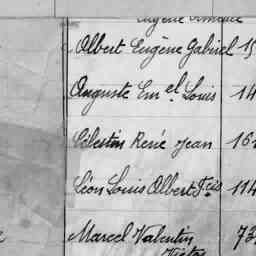 Eugène
Albert Eugène Gabriel 15
Auguste Em el. Louis 14
Célestin René Jean 162
Léon Louis Albert Fcis 114
Marcel Valentin 73
Victor